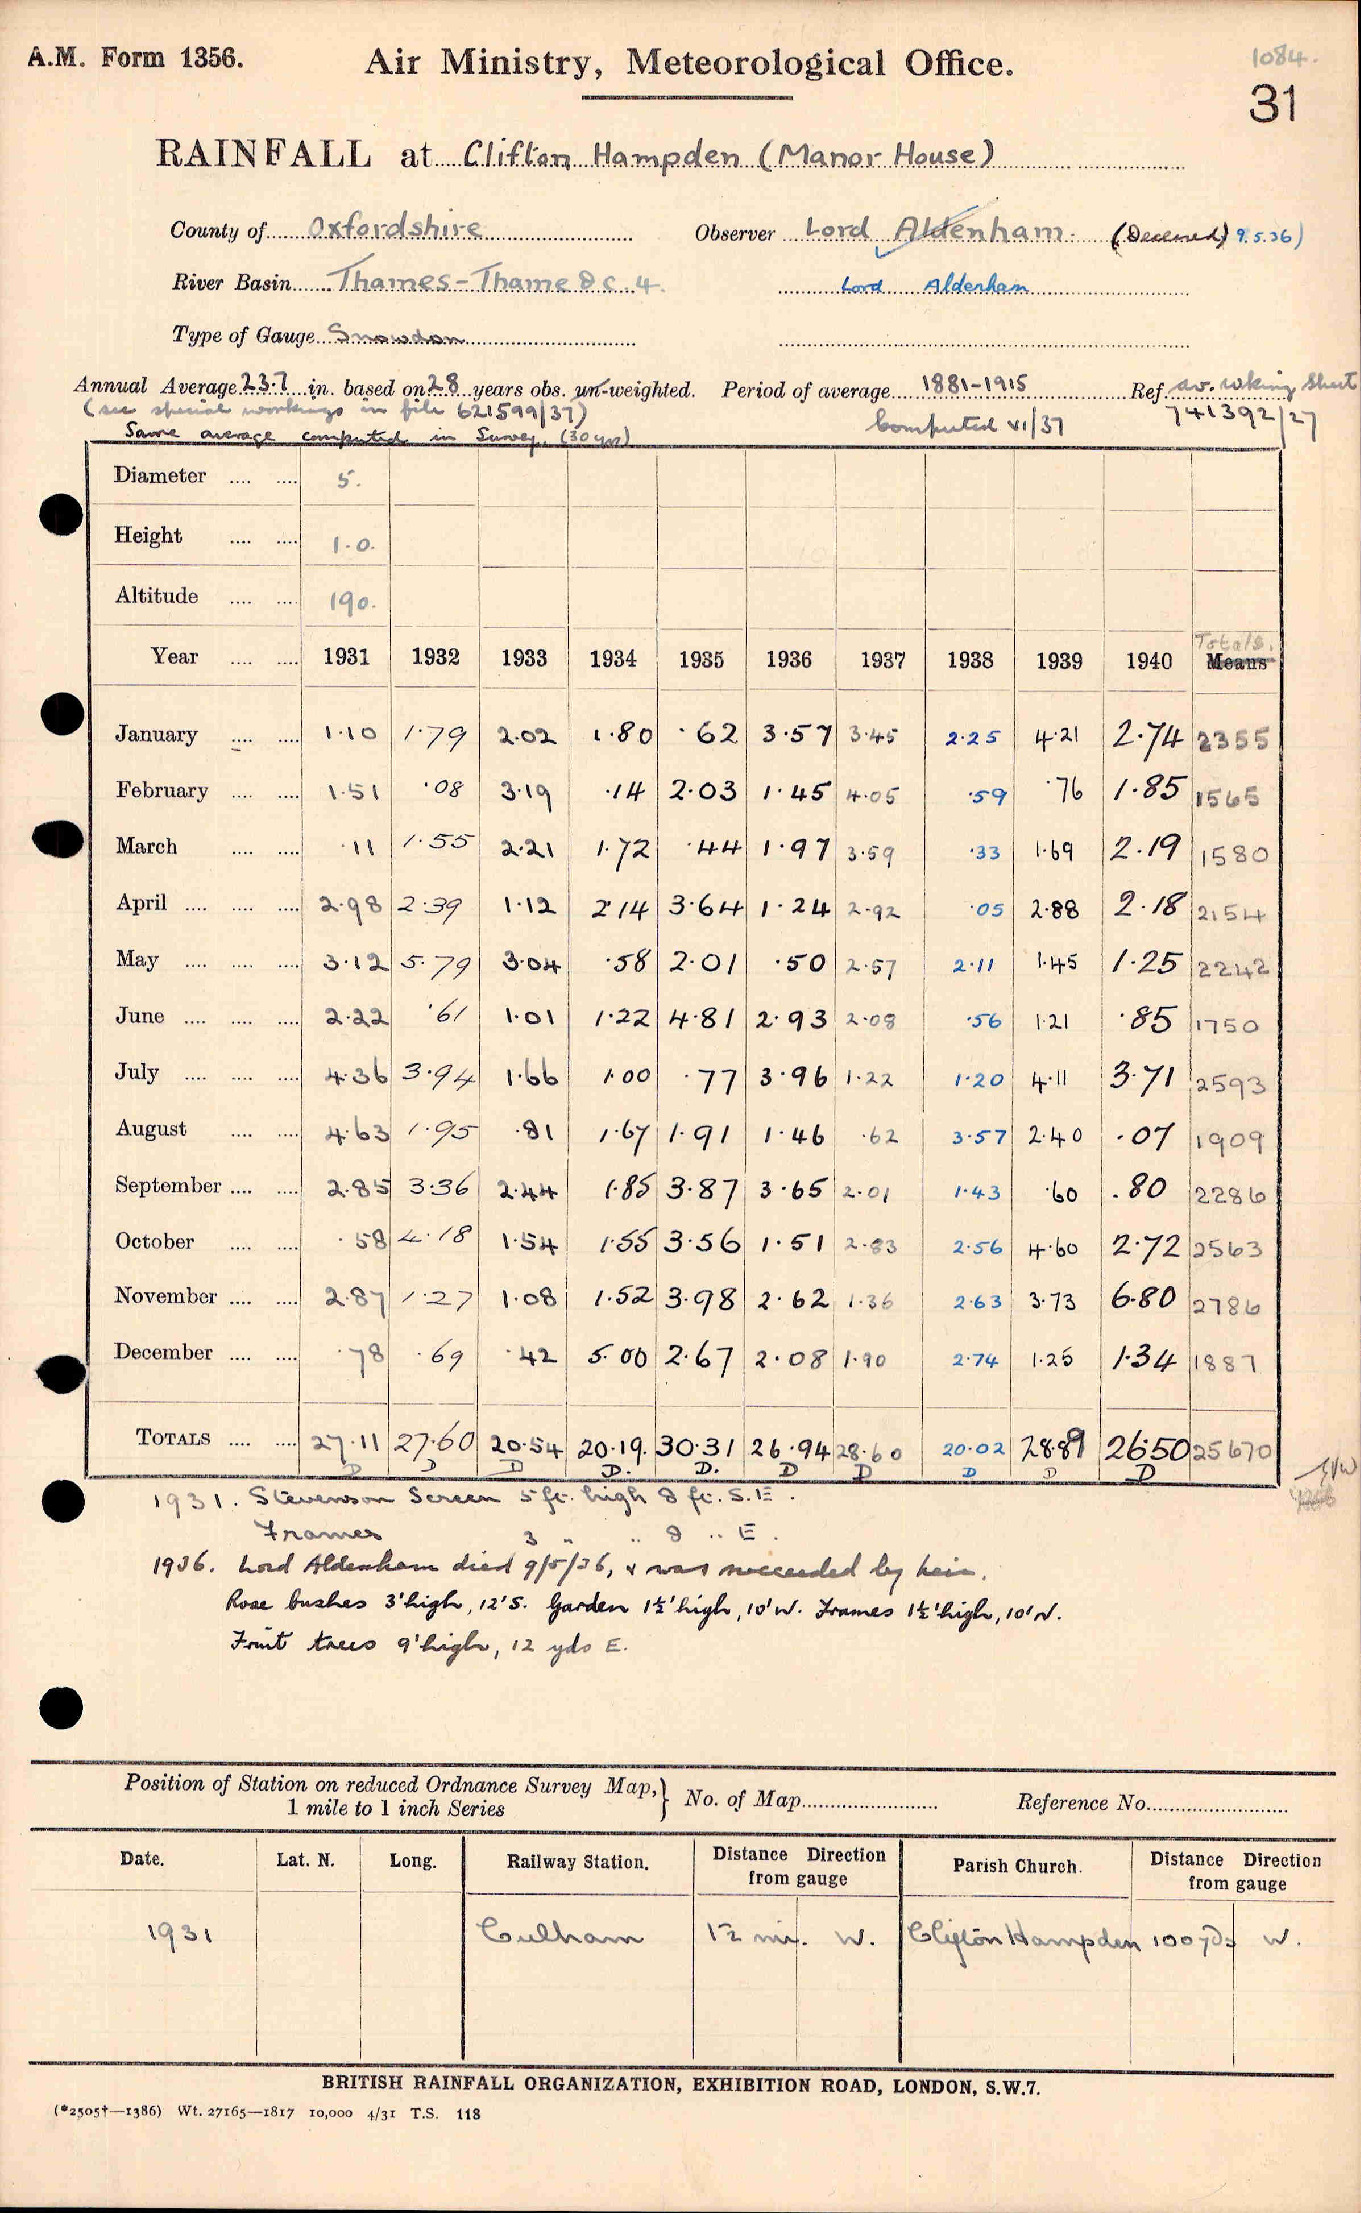 A.M. Form 1356.
Air Ministry, Meteorological Office.
1084.
31
RAINFALL at Clifton Hampden (Manor House)
County of Oxfordshire
Observer Lord Aldenham. (Deceased) 9.5.36)
River Basin Thames - Thame D C. 4.
Lord Aldenham
Type of Gauge Snowdon
Annual Average 23.7 in. based on 28 years obs. un-weighted. Period of average 1881-1915 Ref. av. wking Sheet
(see special workings in file 621599/37)
741392/27
Same average computed in Survey. (30 yrs)
Computed VI/37
Diameter .... .... 5.
Height .... .... 1.0.
Altitude .... .... 190.
Totals.
Year .... .... 1931 1932 1933 1934 1935 1936 1937 1938 1939 1940 Means
January .... .... 1.10 1.79 2.02 1.80 .62 3.57 3.45 2.25 4.21 2.74 2355
February .... .... 1.51 .08 3.19 .14 2.03 1.45 4.05 .59 .76 1.85 1565
March .... .... .11 1.55 2.21 1.72 .44 1.97 3.59 .33 1.69 2.19 1580
April .... .... .... 2.98 2.39 1.12 2.14 3.64 1.24 2.92 .05 2.88 2.18 2154
May .... .... .... 3.12 5.79 3.04 .58 2.01 .50 2.57 2.11 1.45 1.25 2242
June .... .... .... 2.22 .61 1.01 1.22 4.81 2.93 2.08 .56 1.21 .85 1750
July .... .... .... 4.36 3.94 1.66 1.00 .77 3.96 1.22 1.20 4.11 3.71 2593
August .... .... 4.63 1.95 .81 1.67 1.91 1.46 .62 3.57 2.40 .07 1909
September .... .... 2.85 3.36 2.44 1.85 3.87 3.65 2.01 1.43 .60 .80 2286
October .... .... .58 4.18 1.54 1.55 3.56 1.51 2.83 2.56 4.60 2.72 2563
November .... .... 2.87 1.27 1.08 1.52 3.98 2.62 1.36 2.63 3.73 6.80 2786
December .... .... .78 .69 .42 5.00 2.67 2.08 1.90 2.74 1.25 1.34 1887
TOTALS .... .... 27.11 27.60 20.54 20.19. 30.31 26.94 28.60 20.02 28.89 26.50 25670
D D D D. D. D D D D D
1931. Stevenson Screen 5 ft. high 8 ft. S.E.
Frames 3 " " 8 " E.
1936. Lord Aldenham died 9/5/36, & was succeeded by heir.
Rose bushes 3' high, 12' S. Garden 1½' high, 10' W. Frames 1½' high, 10' N.
Fruit trees 9' high, 12 yds E.
Position of Station on reduced Ordnance Survey Map, } No. of Map Reference No.
1 mile to 1 inch Series
Date. Lat. N. Long. Railway Station. Distance Direction from gauge Parish Church. Distance Direction from gauge
1931 Culham 1½ mi. W. Clifton Hampden 100 yds W.
BRITISH RAINFALL ORGANIZATION, EXHIBITION ROAD, LONDON, S.W.7.
(*2505†—1386) Wt. 27165—1817 10,000 4/31 T.S. 118